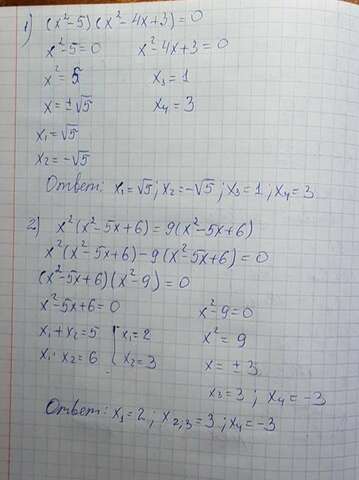 1) (x²-5)(x²-4x+3)=0
x²-5=0 x²-4x+3=0
x²=5 x₃=1
x=±√5 x₄=3
x₁=√5
x₂=-√5
Ответ: x₁=√5; x₂=-√5; x₃=1; x₄=3
2) x²(x²-5x+6)=9(x²-5x+6)
x²(x²-5x+6)-9(x²-5x+6)=0
(x²-5x+6)(x²-9)=0
x²-5x+6=0 x²-9=0
x₁+x₂=5 { x₁=2 x²=9
x₁·x₂=6 x₂=3 x=±3
x₃=3; x₄=-3
Ответ: x₁=2; x₂,₃=3; x₄=-3